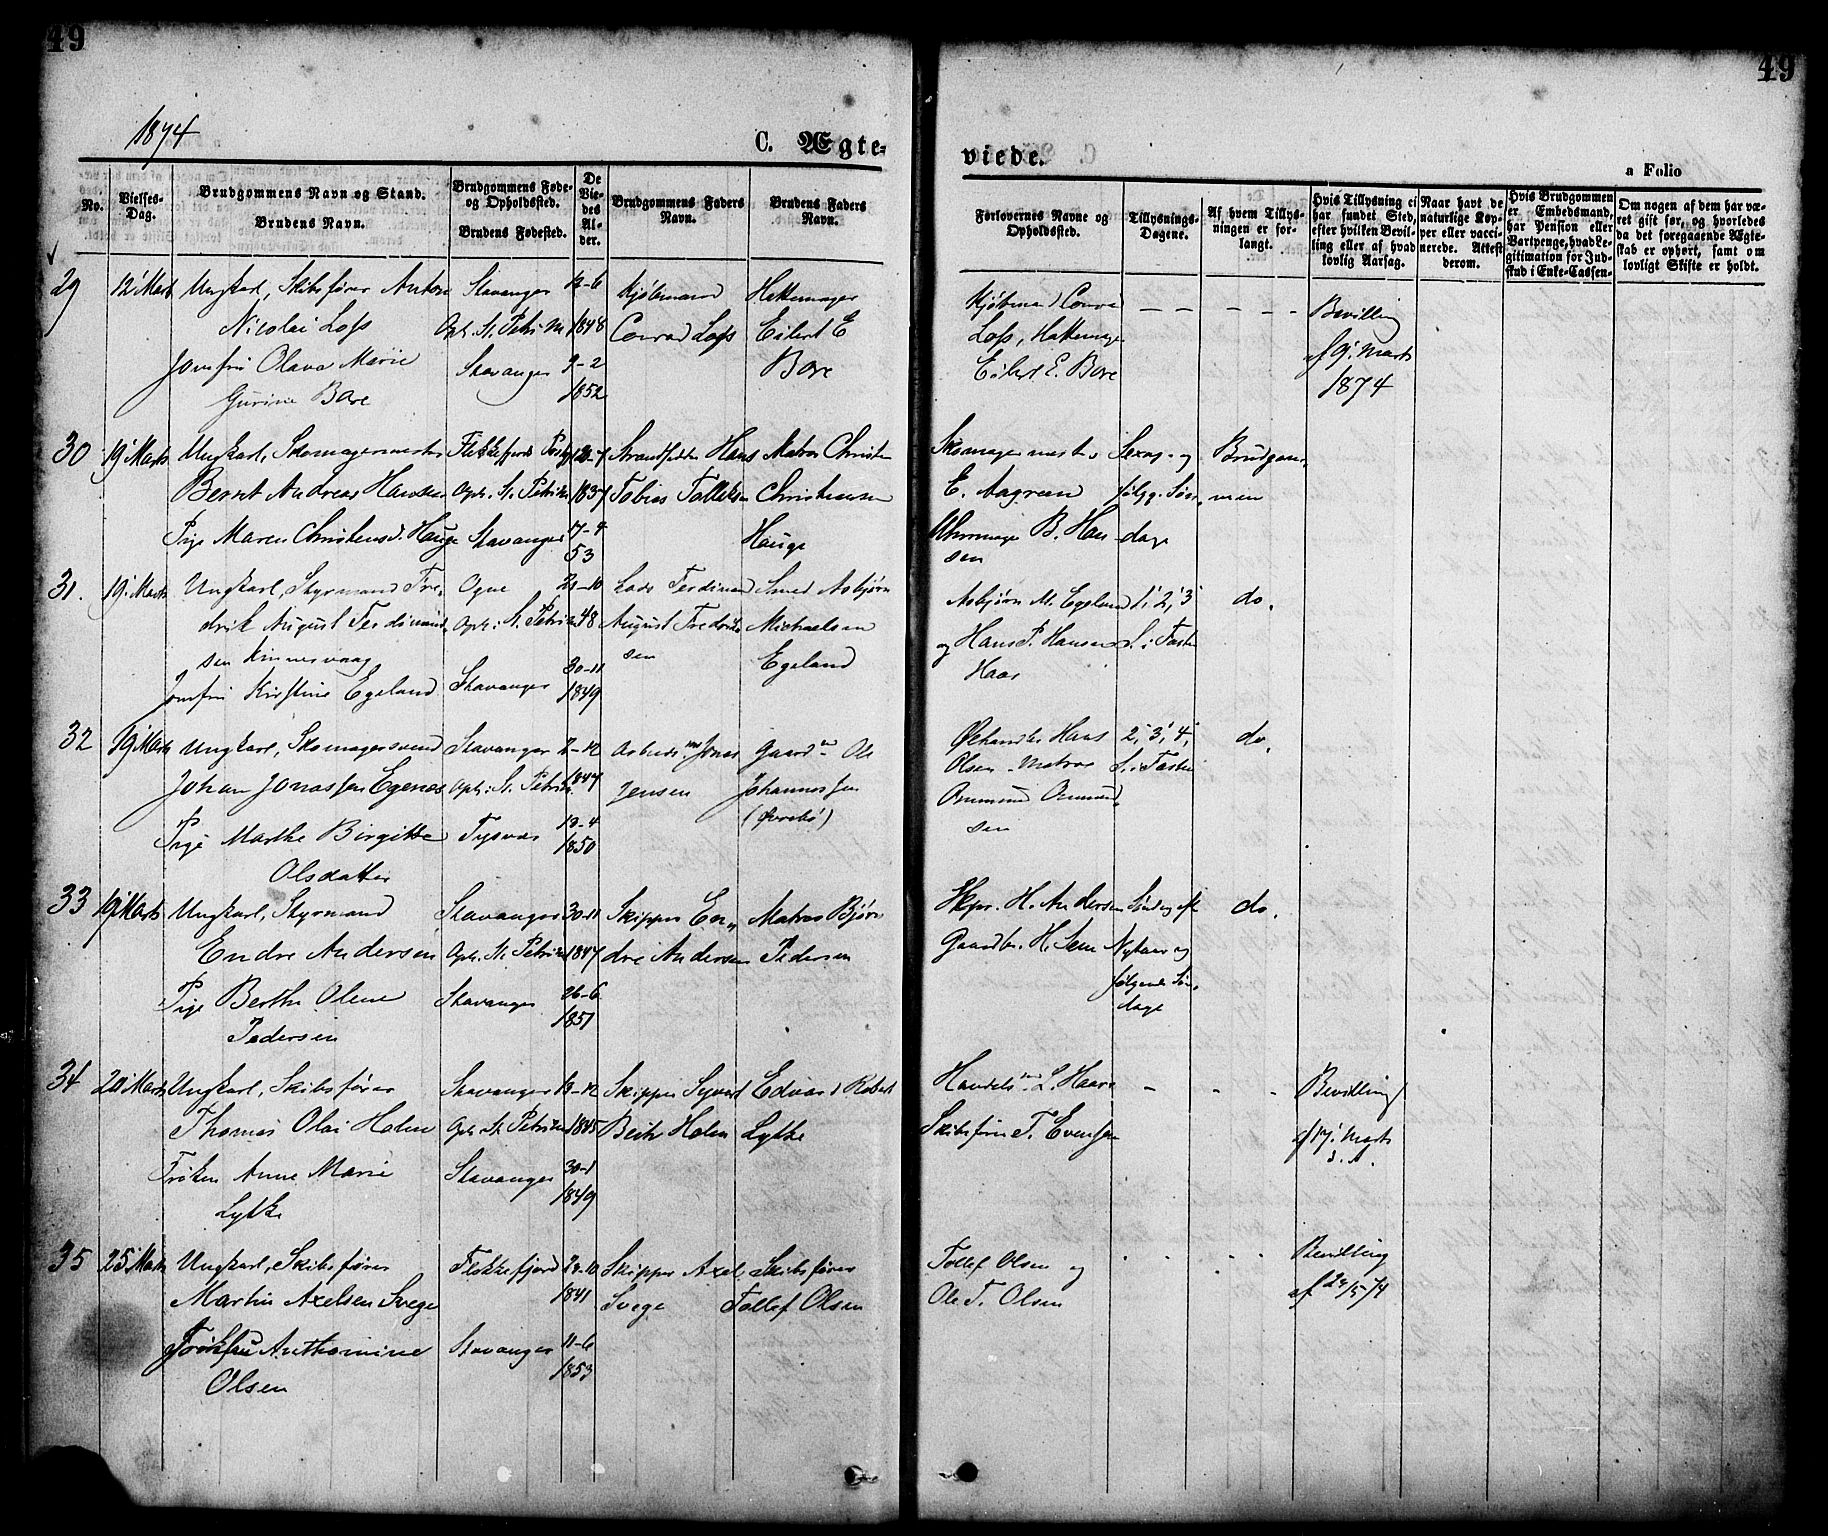 49
49
1874
C. Ægte-
viede.
a Folio
No.
Vielses-
Dag.
Brudgommens Navn og Stand.
Brudens Navn.
Brudgommens Føde-
og Opholdssted.
Brudens Fødested.
De
Vie-
des
Al-
der.
Brudgommens Faders
Navn.
Brudens Faders
Navn.
Forlovernes Navne og
Opholdssted.
Tillysnings-
Dagene.
Af hvem Tillys-
ningen er for-
langt.
Hvis Tillysning ei
har fundet Sted,
efter hvilken Bevil-
ling eller af hvad
lovlig Aarsag.
Naar havt de
naturlige Kop-
per eller vacci-
nerede. Attest
derom.
Hvis Brudgommen
er Embedsmand,
har Pension eller
Vartpenge, hvad Le-
gitimation for Ind-
skud i Enke-Cassen.
Om nogen af dem har væ-
ret gift før, og hvorledes
da det foregaaende Ægte-
skab er ophørt, samt om
lovligt Skifte er holdt.
29 12' Mart Ungkarl, Skibsfører Anton Stavanger 12-6 Kjøbmand Hattemager Kjøbmand Conra - - - - - Bevilling
Nicolai Loss Oph. St. Petri M 1848 Conrad Loss Eilert E Loss, Hattemager af 9' Marts
Jomfru Olava Marie Stavanger 9-2 Bore Eilert E. Bore 1874
Gurine Bore 1852
30 19' Marts Ungkarl, Skomagermester Flekkefjords 7 Hans Matros Christen Skomagermester Sexag. og Brudgom-
Bernt Andreas Hansen Oph. St. Petri M 1837 Tobias Tolleksen Christensen E. Aagreen følgg. Søn- men
Pige Maren Christensd. Hauge Stavanger 17-4 Hauge Uhrmager B. Han- dage
53 sen
31. 19' Marts Ungkarl, Styrmand Fre- Ogne 21-10 Lods Ferdinand Smed Asbjørn Asbjørn M. Egeland 1', 2', 3' do.
drik August Ferdinand- Oph: St. Petri M 48 August Fredrik- Michaelsen og Hans P. Hansen S. i Faste
sen Kinnesvaag sen Egeland Haar
Jomfru Kirstine Egeland Stavanger 30-11
1849
32 19' Marts Ungkarl, Skomagersvend Stavanger 2-12 Arbeidsmd Jonas Gaardm Ole Ølhandler Hans 2', 3', 4', do.
Johan Jonassen Egenæs Oph: St. Petri M. 1847 Jensen Johannessen Olsen - Matros S. i Faste
Pige Marthe Birgitte Tysvær 13-4 (Øvrebø) Ommund Ommund-
Olsdatter 1850 sen
33 19' Marts Ungkarl, Styrmand Stavanger 30-11 Skipper En- Matros Bjørn Skpr. H. Andersen Søndag eft do.
Endre Andersen Oph. St. Petri M 1847 dre Andersen Pedersen Gaardbr. H. Sem Nytaar og
Pige Berthe Olene Stavanger 26-6 følgende Søn-
Pedersen 1851 dage
34 20' Marts Ungkarl, Skibsfører Stavanger 13-12 Skipper Syvert Edvard Robert Handelsmd L. Haar - - - Bevilling
Thomas Olai Holm Oph. St. Petri M 1845 Beith Holm Lytke Skibsfører T. Evensen af 17' Marts
Frøken Anne Marie Stavanger 30-1 d. A.
Lytke 1849
35 25' Marts Ungkarl, Skibsfører Flekkefjord 22-10 Skipper Axel Skibsfører Tollef Olsen og - - - Bevilling
Martin Axelsen Svege 1841 Svege Tollef Olsen Ole T. Olsen
Anthomine Stavanger 11-6
Olsen 1853